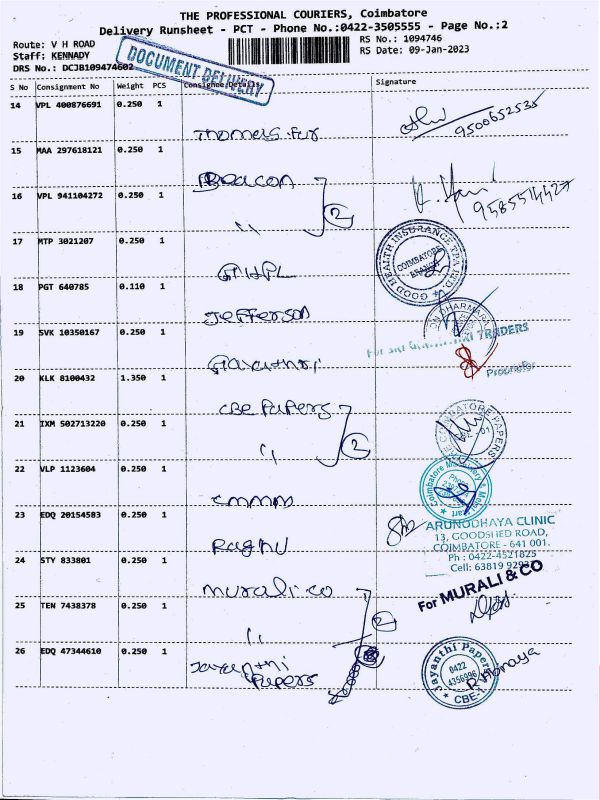 THE PROFESSIONAL COURIERS, Coimbatore
Delivery Runsheet - PCT - Phone No.:0422-3505555 - Page No.:2
Route: V H ROAD
RS No.: 1094746
Staff: KENNADY
RS Date: 09-Jan-2023
DRS No.: DCJB109474602
DOCUMENT DELIVERY
S No Consignment No Weight PCS Consignee Details Signature
14 VPL 400876691 0.250 1
Thomas fur
9500652535
15 MAA 297618121 0.250 1
Beacon
16 VPL 941104272 0.250 1
" 2
9585514427
17 MTP 3021207 0.250 1
GMHPL
GOOD HEALTH INSURANCE TPA LTD.
COIMBATORE
BRANCH
18 PGT 640785 0.110 1
Jefferson
19 SVK 10350167 0.250 1
Gayathri
TRADERS
Proprietor
20 KLK 8100432 1.350 1
CBE Papers
21 IXM 502713220 0.250 1
" 2
COIMBATORE PAPERS
22 VLP 1123604 0.250 1
cmmm
Coimbatore
23 EDQ 20154583 0.250 1
Raghu
ARUNODHAYA CLINIC
13, GOODSHED ROAD,
COIMBATORE - 641 001.
Ph : 0422-4521825
Cell: 63819
24 STY 833801 0.250 1
Murali co
For MURALI & CO
25 TEN 7438378 0.250 1
" 2
26 EDQ 47344610 0.250 1
Jayanthi
Papers
Jayanthi Papers
0422
4356996
CBE-1